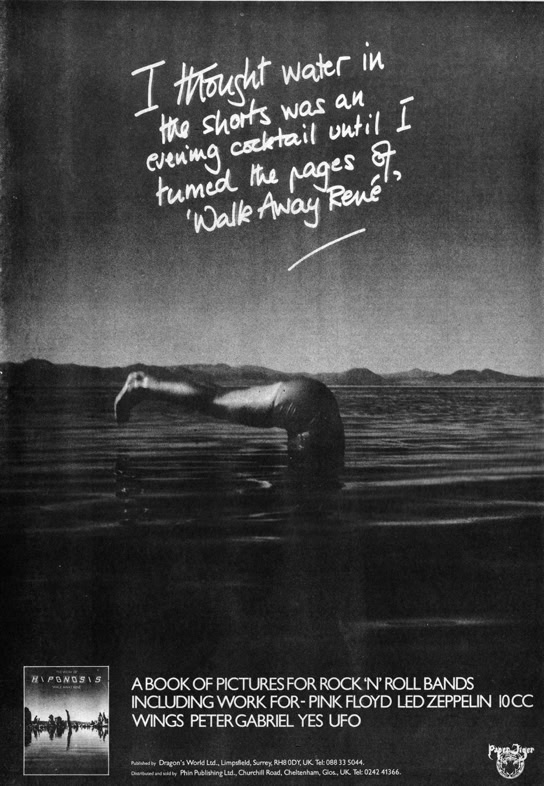 I thought water in
the shorts was an
evening cocktail until I
turned the pages of,
'Walk Away René'
HIPGNOSIS
WALK AWAY RENÉ
A BOOK OF PICTURES FOR ROCK 'N' ROLL BANDS
INCLUDING WORK FOR - PINK FLOYD LED ZEPPELIN 10CC
WINGS PETER GABRIEL YES UFO
Published by Dragon's World Ltd., Limpsfield, Surrey, RH8 0DY, UK. Tel: 088 33 5044.
Distributed and sold by Phin Publishing Ltd., Churchill Road, Cheltenham, Glos., UK. Tel: 0242 41366.
Paper Tiger